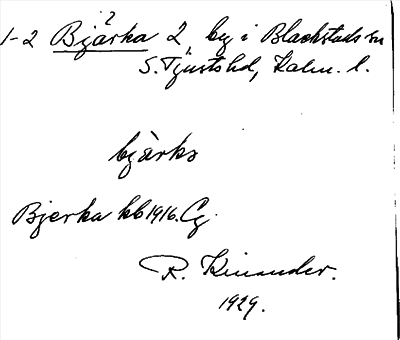 ?
1-2 Bjärka 2, by i Blackstads sn
S. Tjusts hd, Kalm. l.
bjärka
Bjerka kb 1916. Cg.
R. Kinander.
1929.